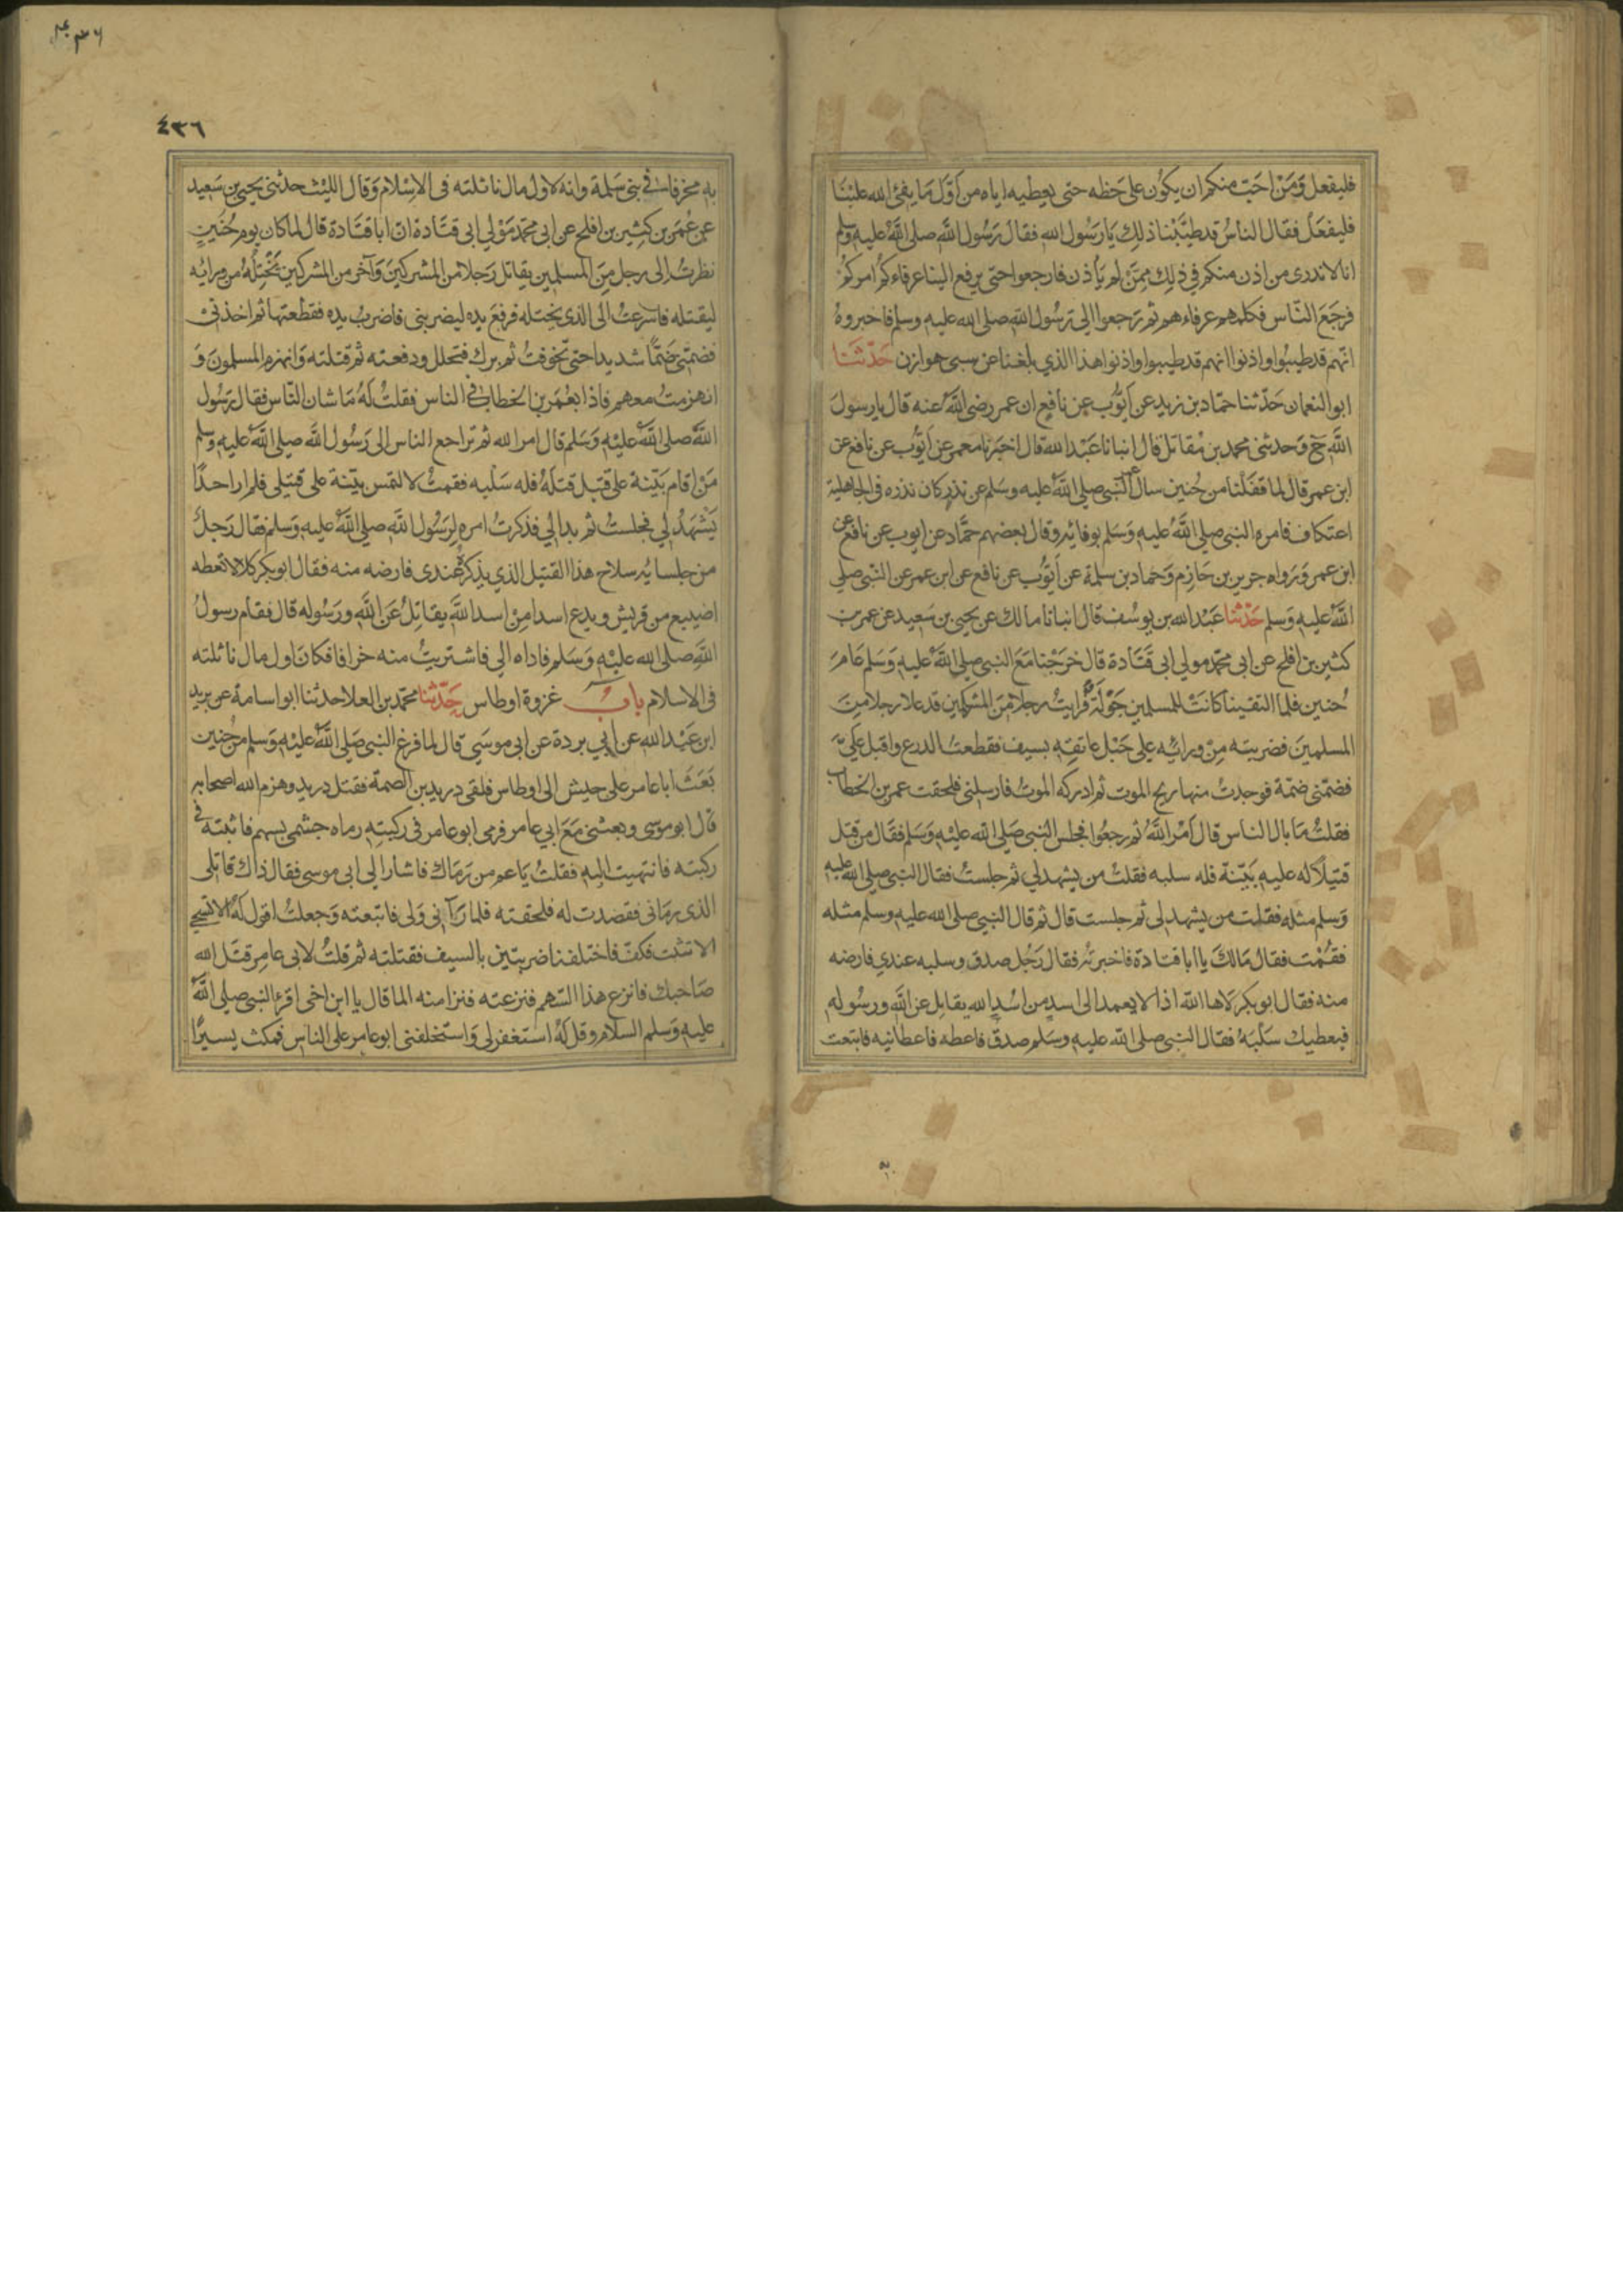 فليفعل وَمَنْ احَبّ منكم ان يكوُن على حَظه حتى يعطيه اياه من اَوّل مَا يفئ الله علَيْنَا
فليفعَل فقال الناسُ قد طيَّبْنا ذلِك يَارَسُول الله فقال رَسُول اللّه صلى اللّه عليهِ وسلم
انا لا ندرى من اذن منكم في ذلِك مِمَّنْ لم يَأذن فارجعوا حتى يرفع الينا عرفاءكمُ امركمُ
فرجَعَ النّاس فكلمهم عرفاءهم ثم رَجعوا الى رَسُول اللّه صلى الله عليهِ وسلم فاخبروهُ
انّهم قد طيبُوا واذنوا انهم قد طيبوا واذنوا هذا الذي بلغنا عن سبى هوازن حَدّثَنا
ابو النعمان حَدّثنا حمّاد بن زيد عن اَيّوُب عن نافع ان عمر رضى اللّه عنه قال يارسولَ
اللّه ح وَحدثنى محمد بن مُقاتل قال انبانا عَبْد اللّه قال اخبَرنا معمر عن اَيّوُب عن نافع عن
ابن عمر قال لما قفَلْنا من حُنين سال عمر النّبى صلى اللّه عليه وسَلم عن نذرٍ كان نذره فى الجاهلية
اعتكاف فامره النبى صلى اللّهُ عليهِ وَسَلم بوفائه وقال بعضهم حمَّاد عن ايوب عن نافع عن
ابن عمر وَرَواه جرير بن حَازِم وَحماد بن سلمة عن اَيّوُب عن نافع عن ابن عمر عن النّبى صلى
اللّه عليهِ وَسلم حَدّثنا عَبْد الله بن يوسُف قال انبانا مالك عن يحيى بن سَعِيد عن عمر بن
كثير بن افلح عن ابى محمّد مولى ابى قَتَادة قال خرَجْنا مَعَ النبى صلى اللّهُ عليهِ وَسَلم عَامَ
حُنين فلما التقينا كانَتْ للمسلمين جَوْلَة فرايتُ رجلا مِنَ المشركين قد علا رجلا مِن
المسلمينَ فضربته مِنْ ورائه على حَبْل عاتقِه بسيف فقطعتُ الدرع واقبل عَلَيّ
فضمّنى ضمّة فوجدتُ منها ريح الموت ثم ادركه الموتُ فارسلنى فلحقت عمر بن الخطاب
فقلتُ مَا بال الناس قال اَمْرُ اللّهُ ثم رجعُوا فجلس النبى صَلى اللّه عليْهِ وَسَلم فقَال من قتل
قتيلاً له عليهِ بَيّنة فله سلبه فقلتُ من يشهد لي ثم جلستُ فقال النبى صلى الله عليهِ
وَسلم مثله فقلت من يشهد لى ثم جلست قال ثم قال النبى صلى الله عليهِ وسلم مثله
فقُمْت فقال مَالكَ يا ابا قتادة فاخبرته فقال رَجُل صدق وسلبه عندي فارضه
منه فقال ابو بكر لاها اللّه اذا لا يعمد الى اسدٍ من اسُدِ الله يقاتِل عن اللّه ورسُولهِ
فيعطيك سَلَبَهُ فقال النبى صلى اللّه عليهِ وسَلم صدق فاعطه فاعطانيه فابتعت
٤٣٦
به مخرفا فى بنى سَلمة وانه لاول مال تاثلته فى الاِسْلام وَقال الليْث حدثنى يحيى بن سَعِيد
عن عُمَر بن كثِير بن افلح عن ابى محمّد مَوْلى ابى قتَادة انّ ابا قتَادة قال لما كان يوم حُنَينٍ
نظرتُ الى رجل مِنَ المسلمين يقاتل رَجلا من المشركينَ وَآخر من المشركين يَخْتِلهُ من ورائه
ليقتله فاسْرعتُ الى الذى يختله فرفعَ يده ليضربنى فاضربُ يده فقطعتها ثم اخذنى
فضمّنى ضَمًّا شديدا حتى تخوفتُ ثم برك فتحلل ودفعته ثم قتلته وَانهزم المسلمونَ وَ
انهزمتُ معهم فاذا بعُمَر بن الخطاب فى الناس فقلتُ لَهُ مَا شان النّاس فقال رَسُول
اللّهَ صلى اللّهُ عليْهِ وَسَلم قال امر الله ثم تراجع الناس الى رَسُول اللّه صلى اللّهُ عليهِ وسلم
مَنْ اقام بَيّنة على قتيل قتلَهُ فله سَلْبه فقمتُ لالتمس بيّنة على قتيلى فلم ار احدًا
يَشْهَدُ لى فجلستُ ثم بدا لي فذكرتُ امره لِرَسُول اللّه صلى اللّهُ عليهِ وَسلم فقال رَجلُ
من جلسايه سلاح هذا القتيل الذي يذكر عندى فارضه منه فقال ابو بكر كلا لا تعطه
اضيبع من قريش ويدع اسدا مِنْ اسد اللّه يقاتِلُ عَن اللّهِ ورَسُوله قال فقام رسولُ
اللّهِ صلى الله عليْهِ وَسَلم فاداه الي فاشتريتُ منه خرافا فكانَ اول مال تاثلته
فى الاسلام باب غزوة اوطاس حَدّثنا محمّد بن العلا حدثنا ابو اسامة عن بريد
ابن عَبْد الله عن ابي بردة عن ابى موسَي قال لما فرغ النّبى صَلى اللّهُ عليْهِ وَسلم من حُنين
بَعَثَ ابا عامر على جيش الى اوطاس فلقى دريد بن الصمة فقتل دريد وهزم الله اصحابه
قال ابو موسى وبعثنى مَعَ ابي عامر فرمى ابو عامر فى ركبتِهِ رماه جشمى بسهم فاثبته فى
ركبته فانتهيت اليهِ فقلتُ يَا عم من رَمَاك فاشار الى ابى موسى فقال ذاك قاتلى
الذى رمانى فقصدت له فلحقته فلما رَآنى وَلى فاتبعته وَجعلتُ اقول لهُ الا تستحي
الا تثبت فكفّ فاختلفنا ضربتين بالسيف فقتلته ثم قلتُ لابى عامِر قتَل الله
صَاحبك فانزع هذا السّهم فنزعته فنزا منه الما قال يا ابن اخى اقرئ النبى صلى اللّهُ
عليهِ وَسلم السلام وقل لهُ استغفر لى وَاستخلفنى ابو عامر على الناس فمكث يسيرًا